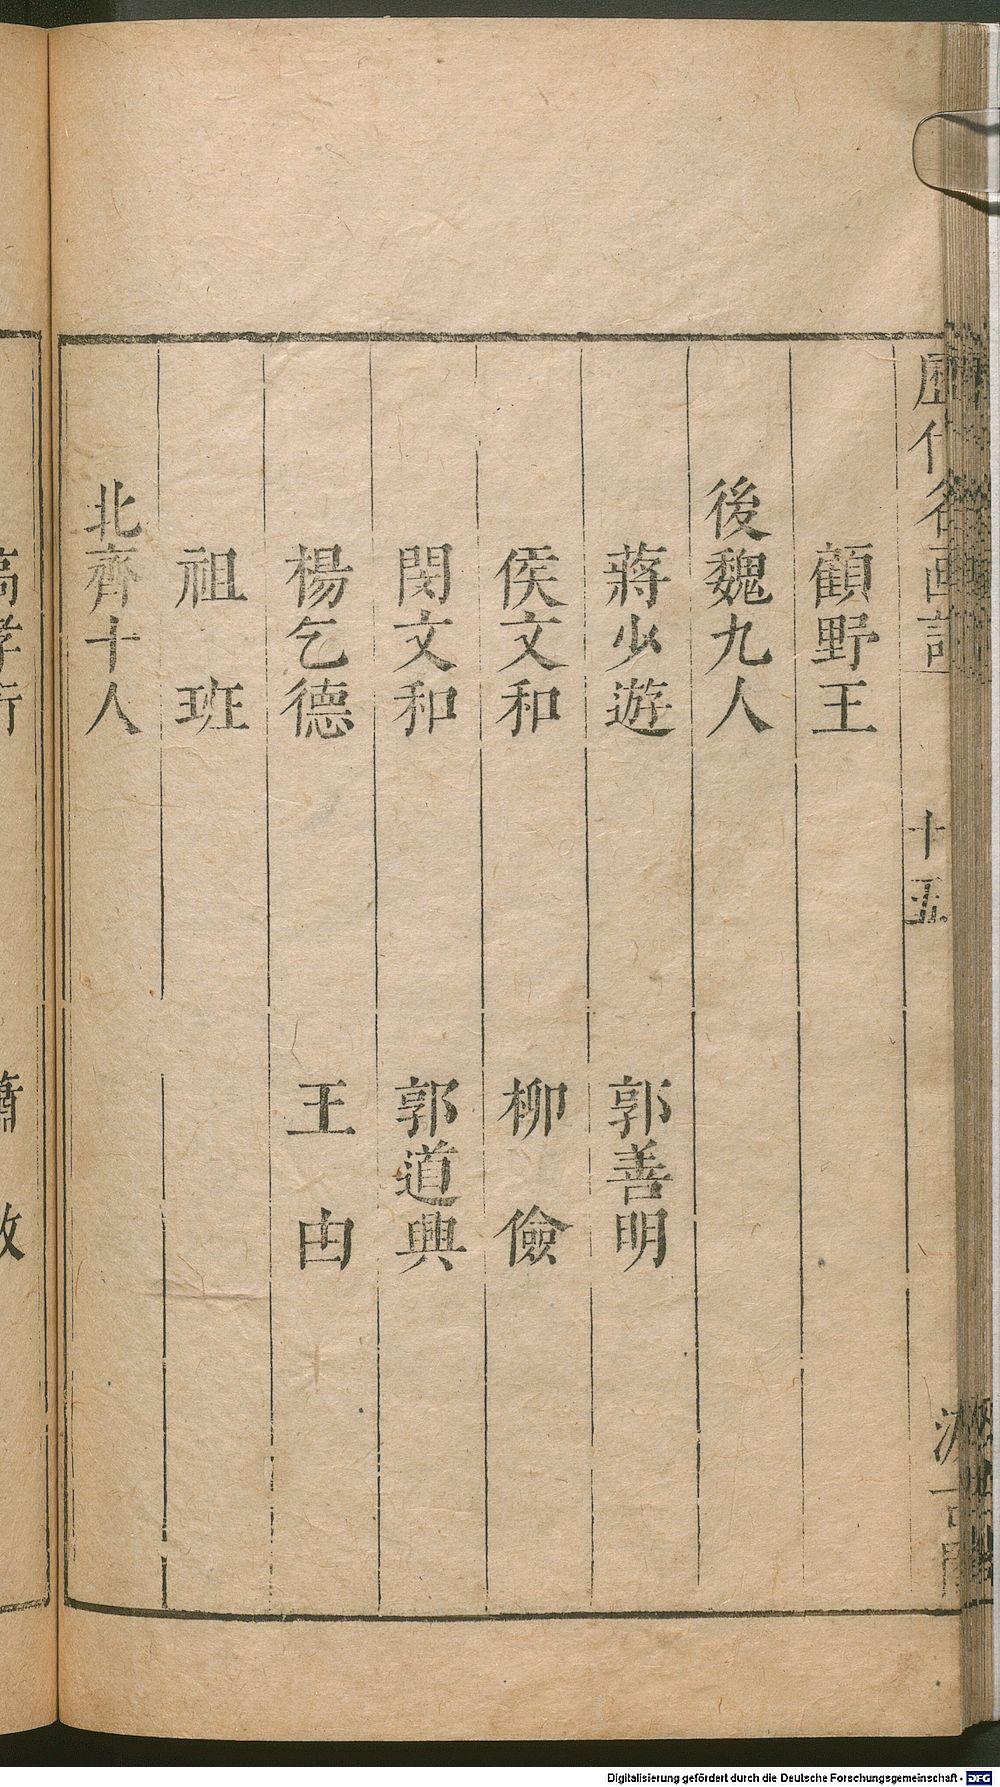 歷代名画記
十五
汲古閣
顧野王
後魏九人
蔣少遊 郭善明
侯文和 柳儉
閔文和 郭道興
楊乞德 王由
祖班
北齊十人
高孝珩 蕭放
Digitalisierung gefördert durch die Deutsche Forschungsgemeinschaft - DFG